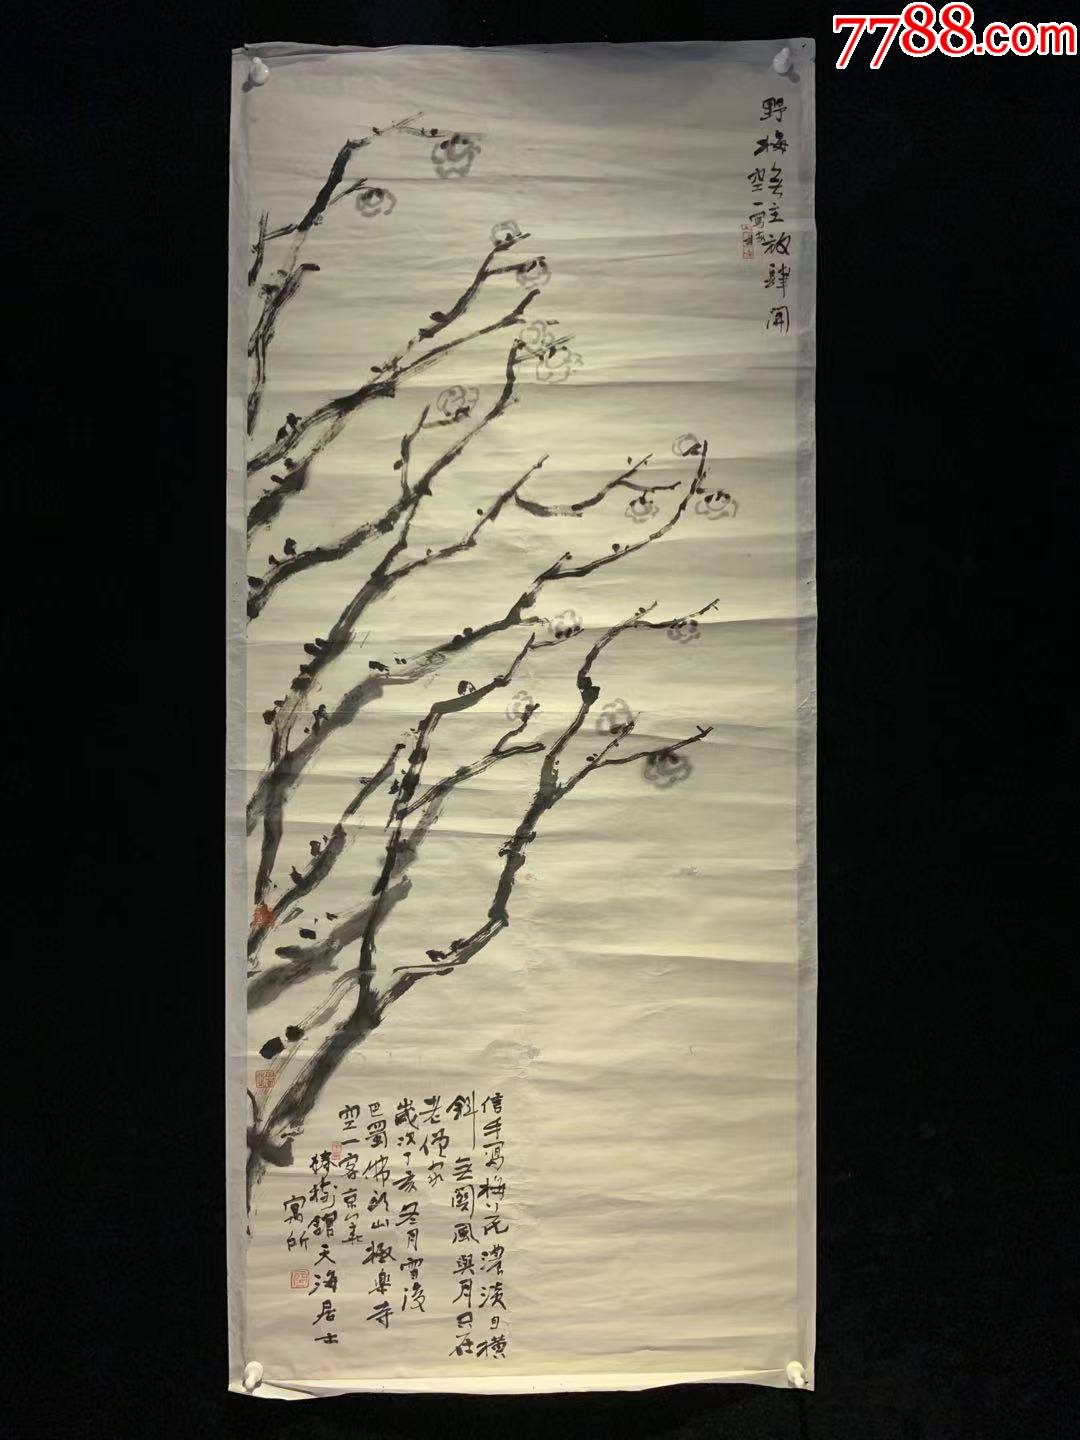 7788.com
野梅無主放肆開
空一寫
信手寫梅花濃淡自橫
斜無關風與月只在
老僧家
歲次丁亥冬月雪後
巴蜀佛頭山極樂寺
空一客京華
椿樹館天海居士
寓所